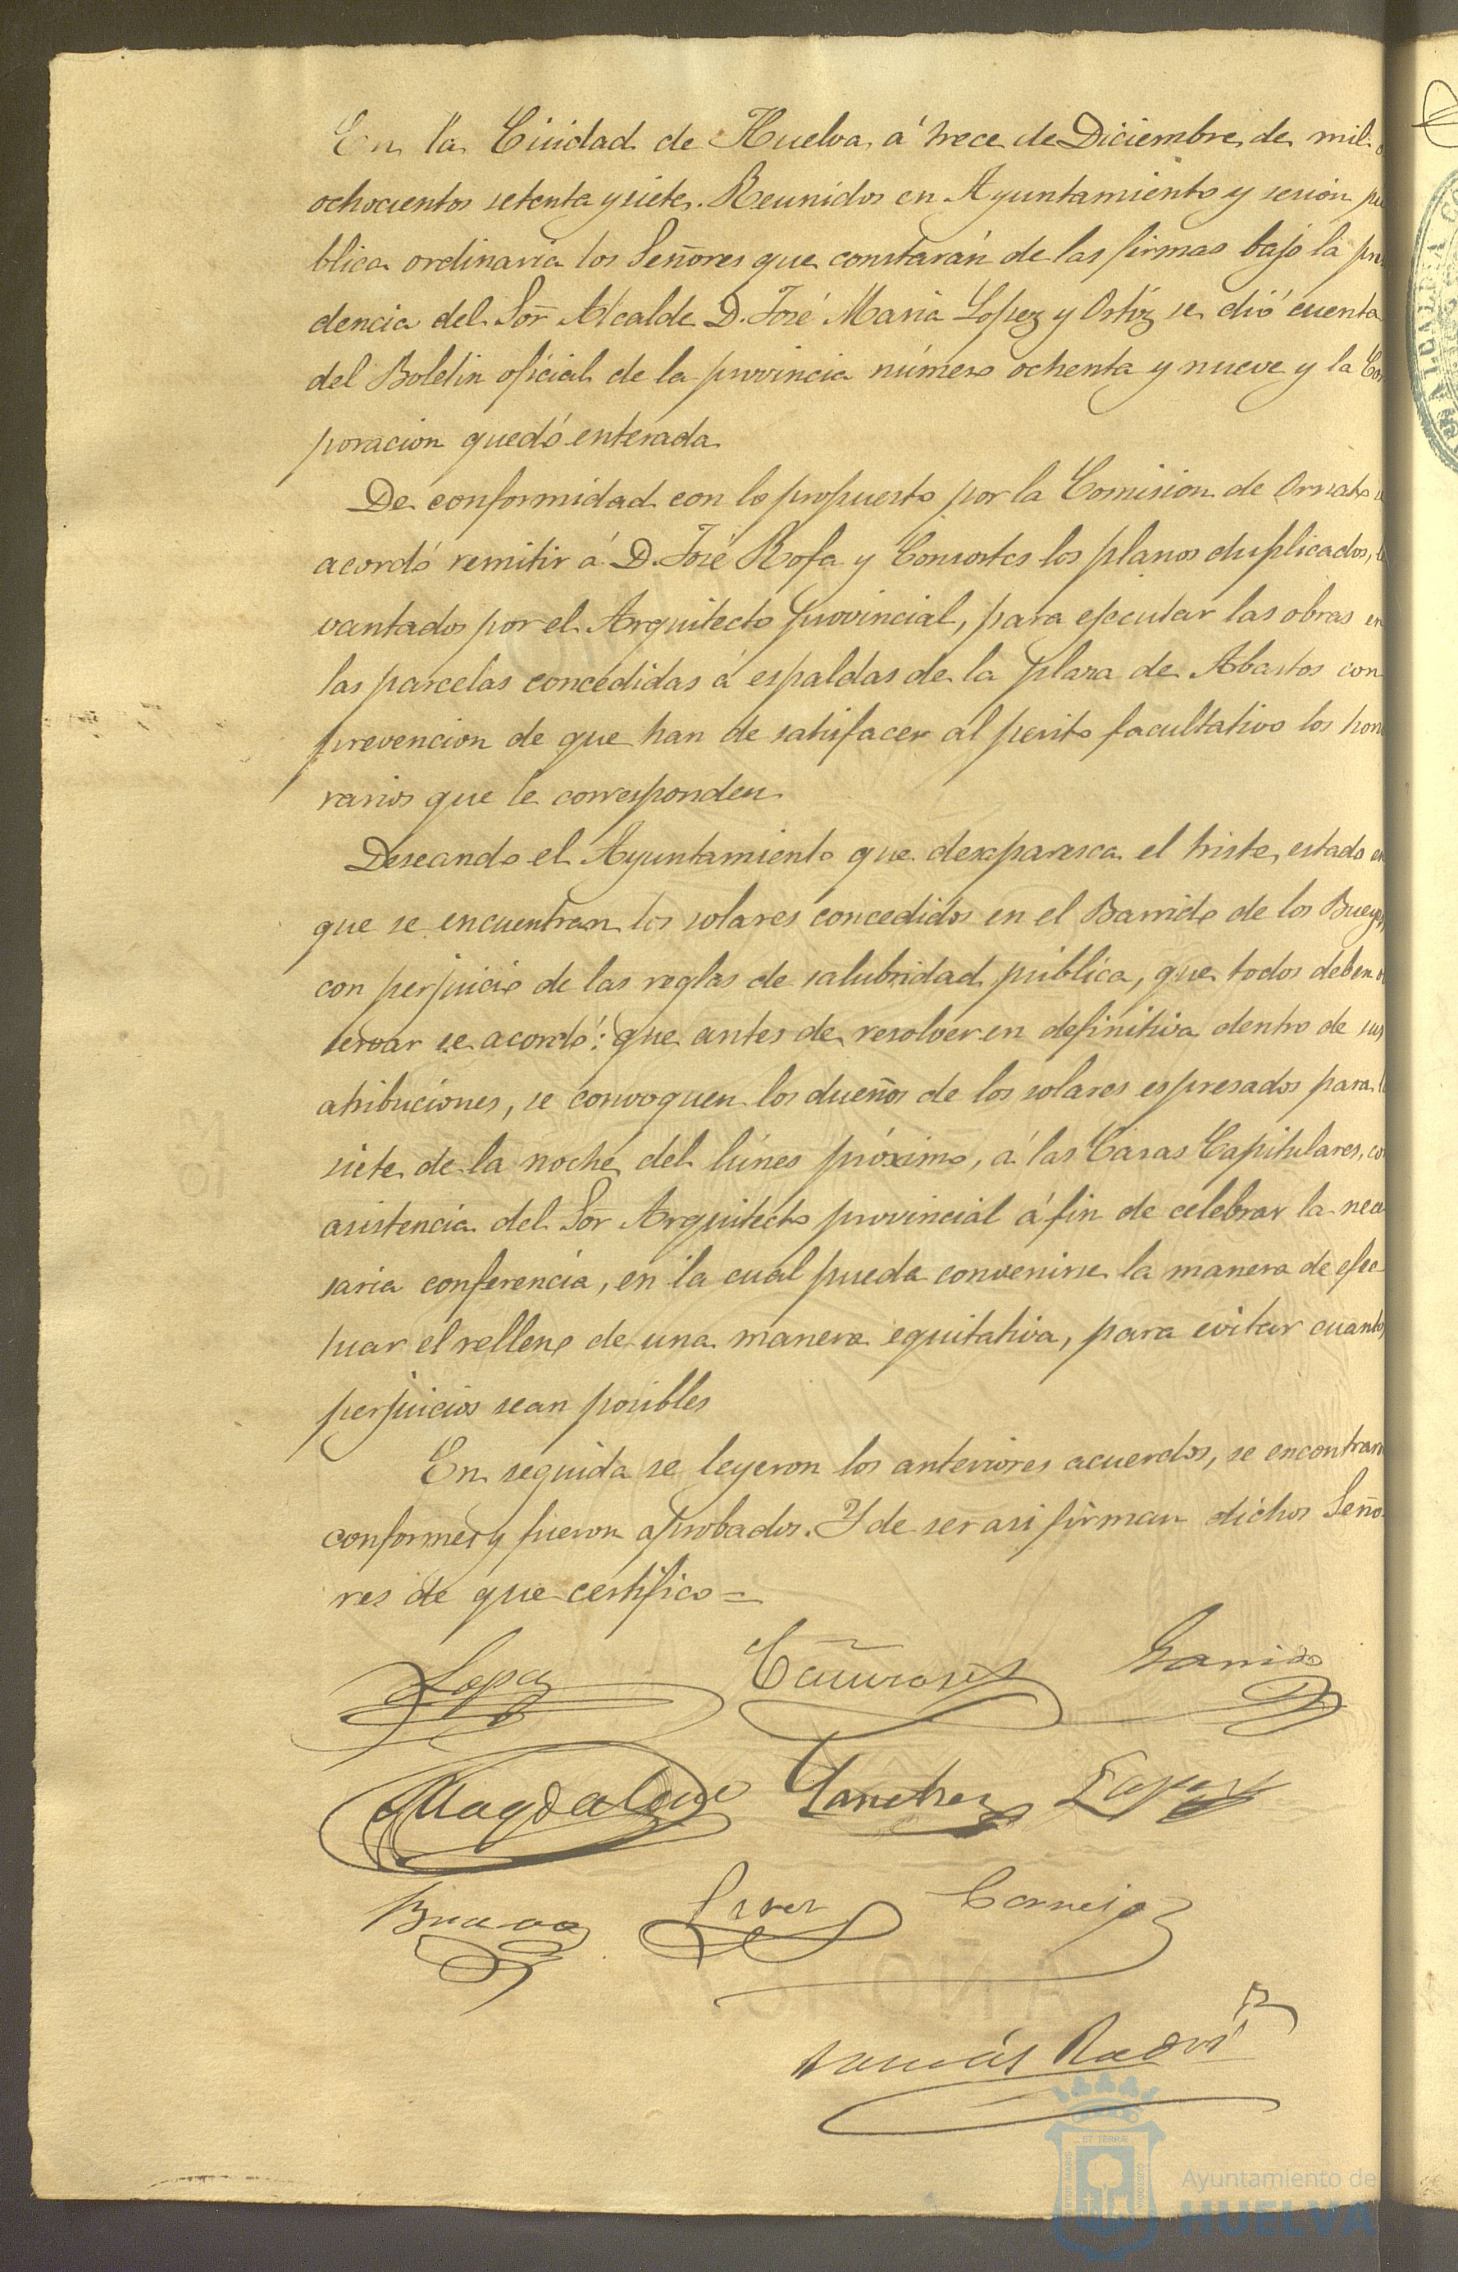 En la Ciudad de Huelva, á trece de Diciembre de mil
ochocientos setenta y siete. Reunidos en Ayuntamiento y sesion pu
blica ordinaria los Señores que constarán de las firmas bajo la pre
dencia del Sor Alcalde D. José Maria Lopez y Ortiz se dió cuenta
del Boletin oficial de la provincia número ochenta y nueve y la Cor
poracion quedó enterada
De conformidad con lo propuesto por la Comision de Ornato
acordó remitir á D. José Rofa y Consortes los planos duplicados, le
vantados por el Arquitecto provincial, para ejecutar las obras en
las parcelas concedidas á espaldas de la plaza de Abastos con
prevencion de que han de satisfacer al perito facultativo los hono
rarios que le corresponden
Deseando el Ayuntamiento que desaparesca el triste estado en
que se encuentran los solares concedidos en el Barrido de los Bueyes
con perjuicio de las reglas de salubridad pública, que todos deben ob
servar se acordó: que antes de resolver en definitiva dentro de sus
atribuciones, se convoquen los dueños de los solares espresados para
siete de la noche del lúnes próximo, á las Casas Capitulares, co
asistencia del Sor Arquitecto provincial á fin de celebrar la nece
saria conferencia, en la cual pueda convenirse la manera de efec
tuar el relleno de una manera equitativa, para evitar cuantos
perjuicios sean posibles
En seguida se leyeron los anteriores acuerdos, se encontraron
conformes y fueron aprobados. Y de ser asi firman dichos Seño
res de que certifico =
Lopez Garrido
Magdalena Sanchez Lopez
Bravo Cornejo
Ayuntamiento de
HUELVA